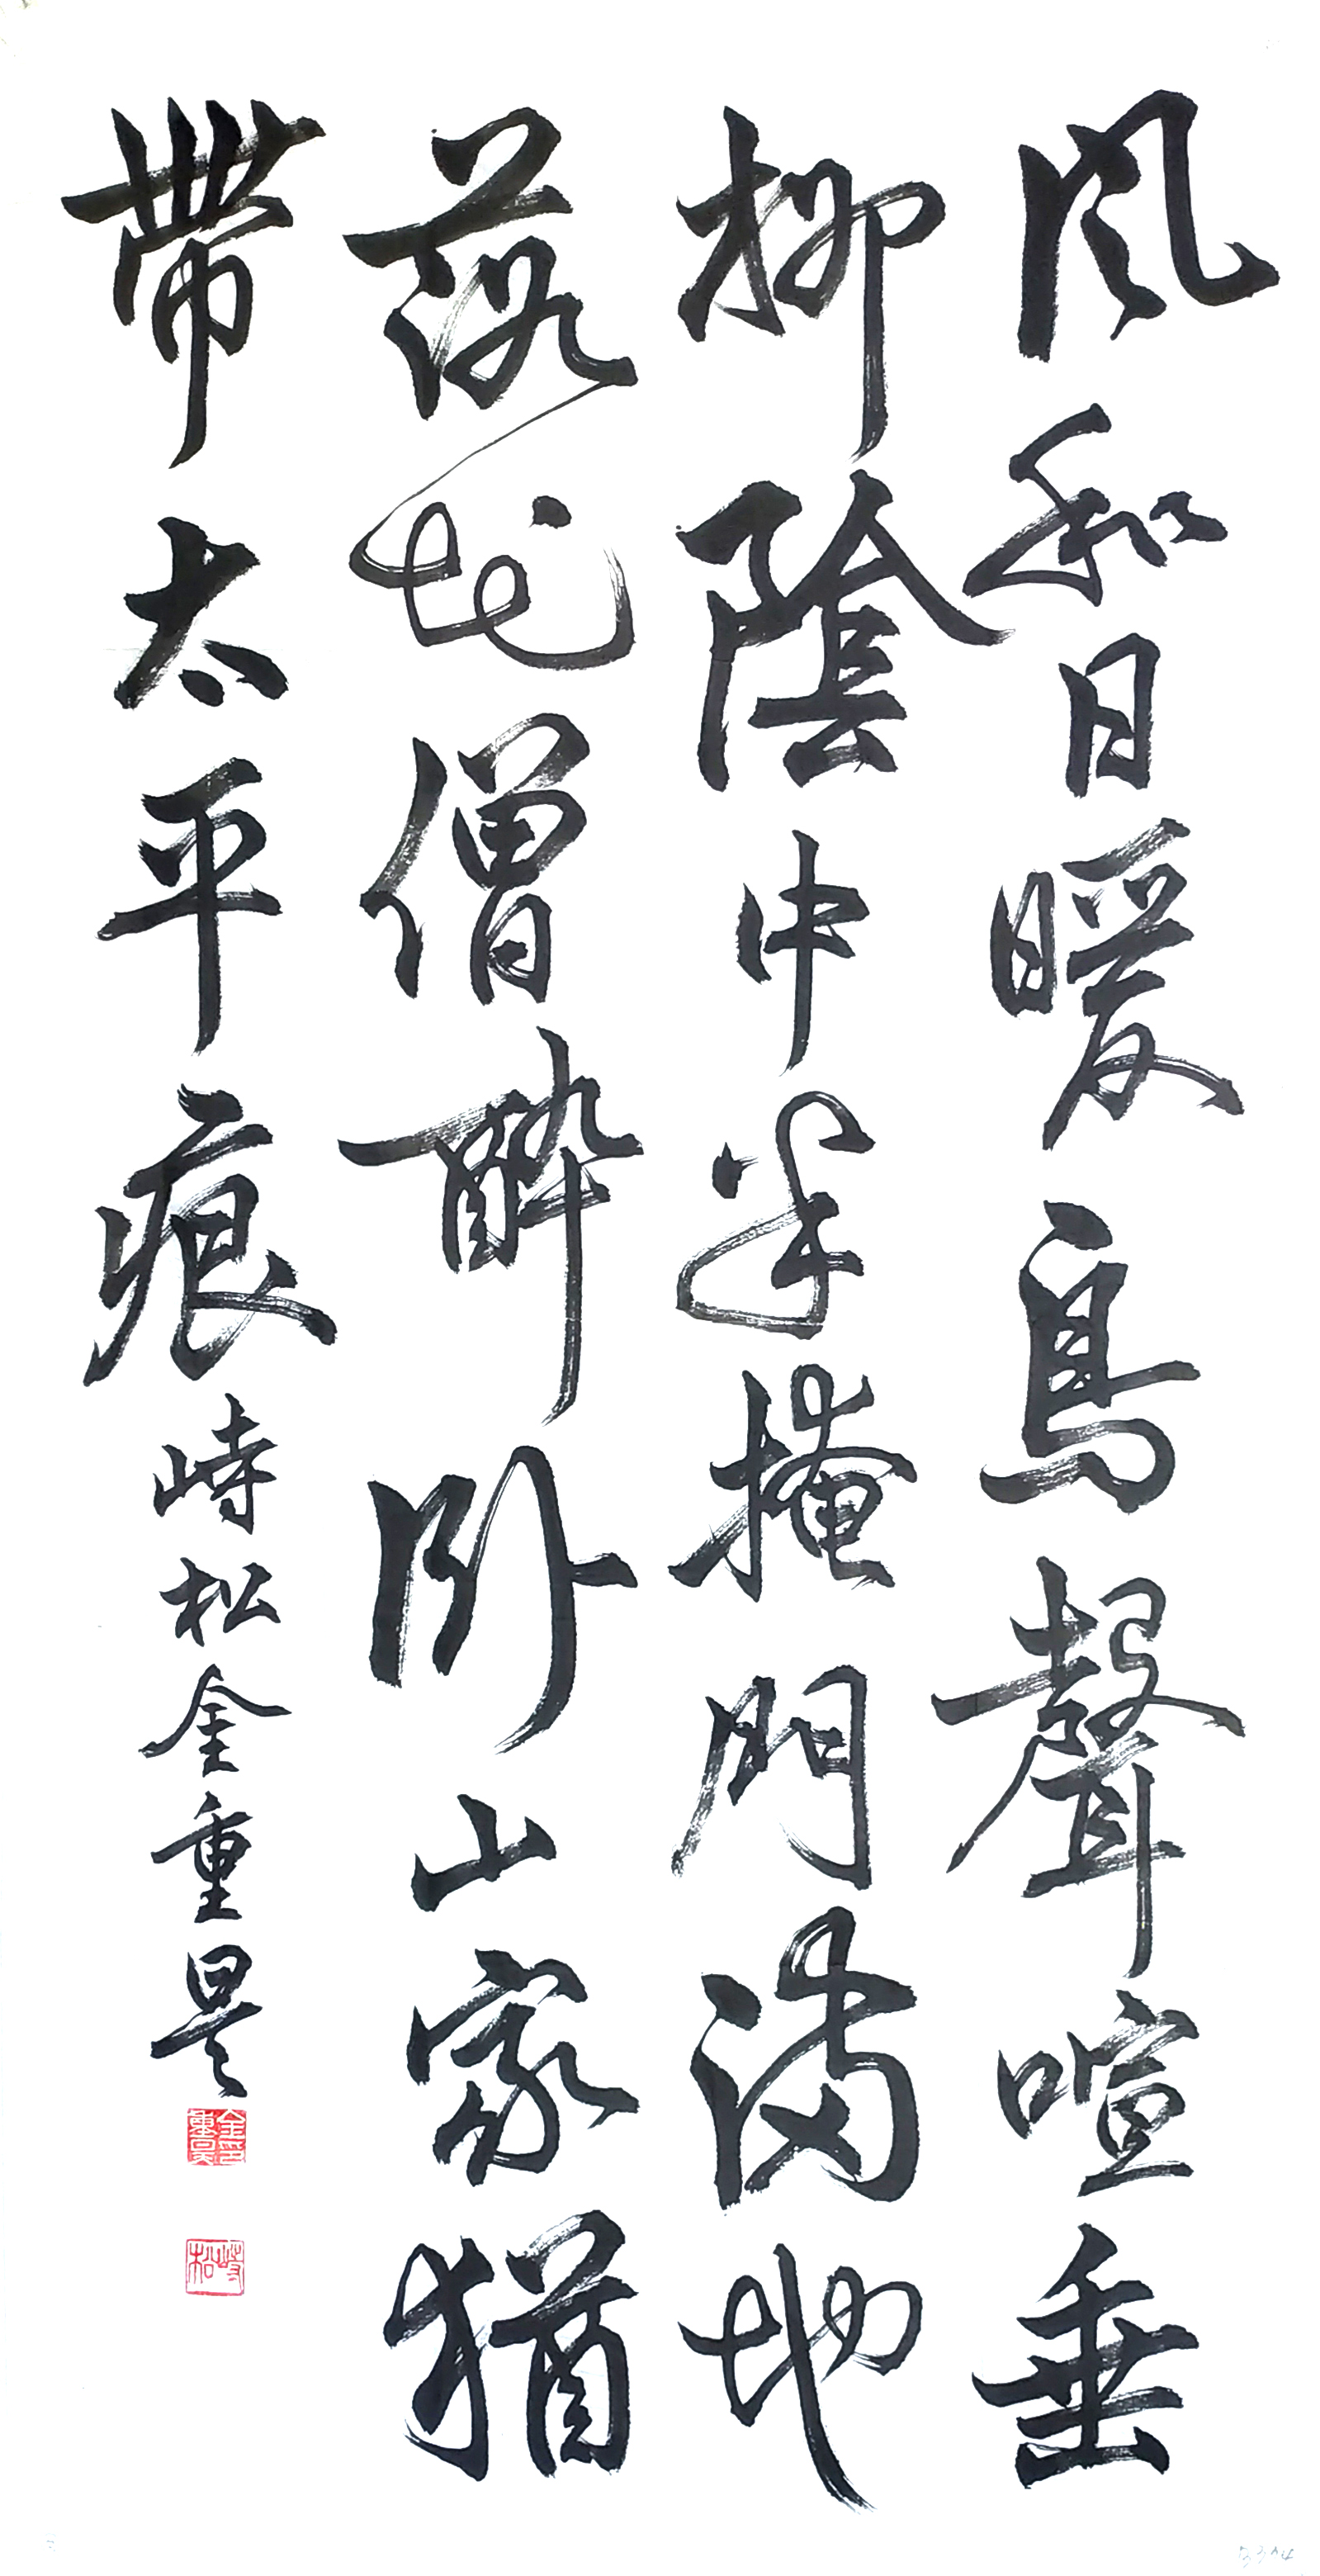 風和日暖鳥聲喧垂
柳陰中半掩門滿地
落花僧醉臥山家猶
帶太平痕 峙松金重昊
金重昊印
峙松